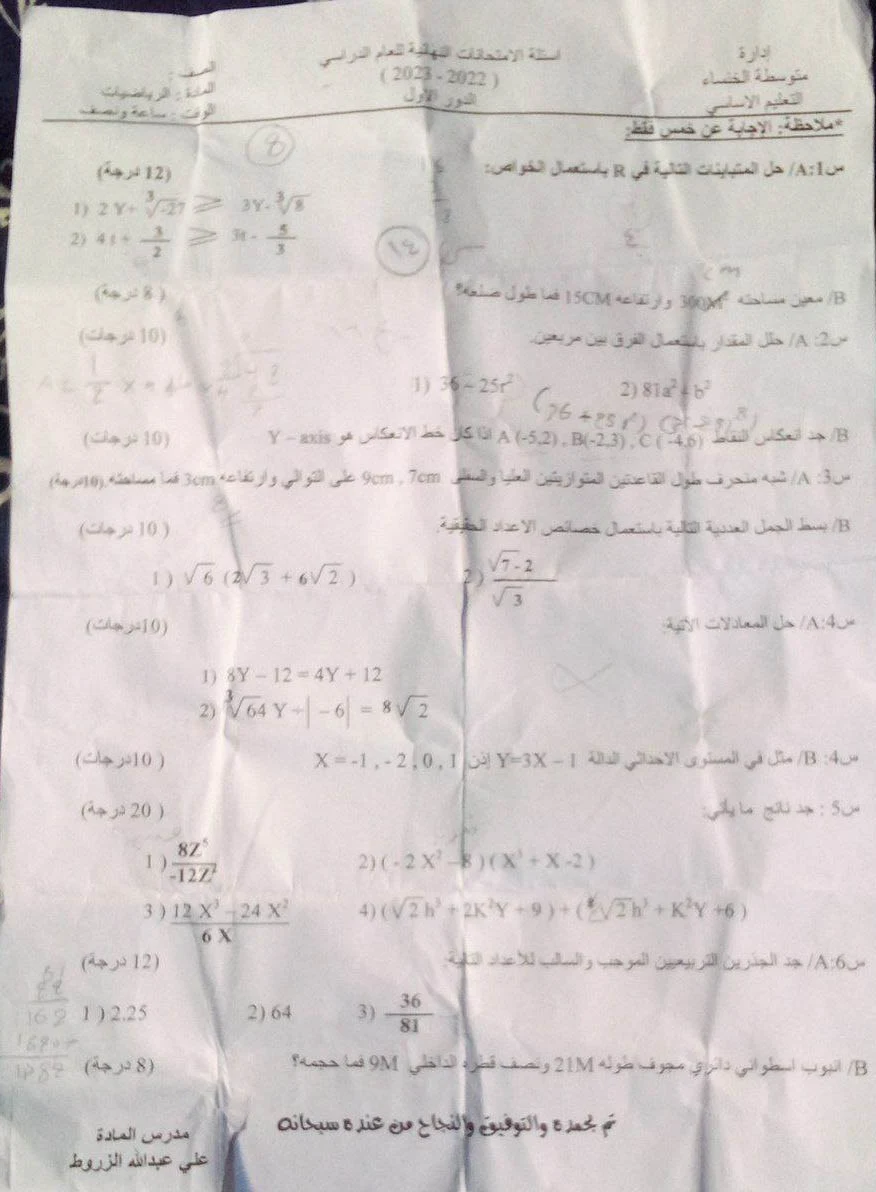 إدارة
متوسطة الخنساء
التعليم الاساسي
اسئلة الامتحانات النهائية للعام الدراسي
( 2022 - 2023 )
الدور الاول
الصف :
المادة : الرياضيات
الوقت : ساعة ونصف
*ملاحظة: الإجابة عن خمس فقط:
س1:A/ حل المتباينات التالية في R باستعمال الخواص: (12 درجة)
1) 2 Y+ ∛-27 ≥ 3Y- ∛8
2) 4t + 3/2 ≥ 3t - 5/3
B/ معين مساحته 300M² وارتفاعه 15CM فما طول ضلعه؟ (8 درجة)
س2: A/ حلل المقدار باستعمال الفرق بين مربعين. (10 درجات)
1) 36 – 25r² 2) 81a² - b²
B/ جد انعكاس النقاط A (-5,2) , B(-2,3) , C ( -4,6) اذا كان خط الانعكاس هو Y – axis (10 درجات)
س3: A/ شبه منحرف طول القاعدتين المتوازيتين العليا والسفلى 9cm , 7cm على التوالي وارتفاعه 3cm فما مساحته. (10درجة)
B/ بسط الجمل العددية التالية باستعمال خصائص الاعداد الحقيقية. (10 درجات)
1 ) √6 (2√3 + 6√2 ) 2 ) √7-2 / √3
س4:A/ حل المعادلات الآتية: (10درجات)
1) 8Y – 12 = 4Y + 12
2) ∛64 Y ÷| – 6| = 8√2
س4: B/ مثل في المستوى الاحداثي الدالة Y=3X – 1 إذن X = -1 , - 2 , 0 , 1 (10درجات)
س5 : جد ناتج ما يأتي: (20 درجة)
1 ) 8Z⁵ / -12Z² 2) ( - 2 X² –8 ) ( X³ + X -2 )
3 ) 12 X³ – 24 X² / 6 X 4) (√2 h³ + 2K²Y + 9 ) + ( √2h³ + K²Y +6 )
س6:A/ جد الجذرين التربيعيين الموجب والسالب للأعداد التالية. (12 درجة)
1 ) 2.25 2) 64 3) 36/81
B/ انبوب اسطواني دائري مجوف طوله 21M ونصف قطره الداخلي 9M فما حجمه؟ (8 درجة)
تم بحمده والتوفيق والنجاح من عنده سبحانه
مدرس المادة
علي عبدالله الزروط